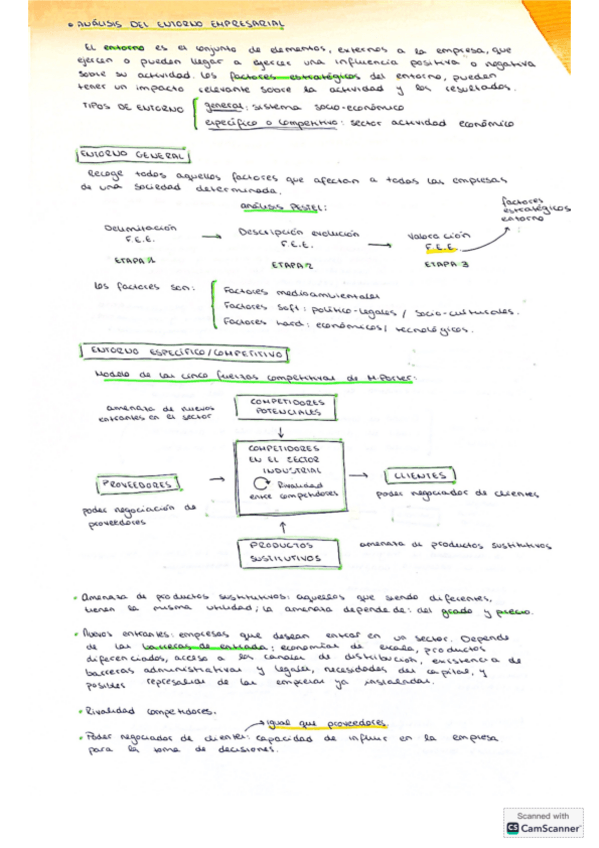 • ANÁLISIS DEL ENTORNO EMPRESARIAL
El entorno es el conjunto de elementos, externos a la empresa, que
ejercen o pueden llegar a ejercer una influencia positiva o negativa
sobre su actividad. Los factores estratégicos del entorno, pueden
tener un impacto relevante sobre la actividad y los resultados.
TIPOS DE ENTORNO
general: sistema socio-económico
específico o competitivo: sector actividad económico
ENTORNO GENERAL
Recoge todos aquellos factores que afectan a todas las empresas
de una sociedad determinada.
ANÁLISIS PESTEL:
factores
estratégicos
entorno
Delimitación
F.E.E.
→
Descripción evolución
F.E.E.
→
Valoración
F.E.E.
ETAPA 1
ETAPA 2
ETAPA 3
Los factores son:
Factores medioambientales
Factores soft: político-legales / socio-culturales.
Factores hard: económicos/ tecnológicos.
ENTORNO ESPECÍFICO/COMPETITIVO
Modelo de las cinco fuerzas competitivas de M.Porter:
amenaza de nuevos
entrantes en el sector
COMPETIDORES
POTENCIALES
COMPETIDORES
EN EL SECTOR
INDUSTRIAL
Rivalidad
entre competidores
PROVEEDORES
CLIENTES
poder negociación de
proveedores
poder negociador de clientes
PRODUCTOS
SUSTITUTIVOS
amenaza de productos sustitutivos
• Amenaza de productos sustitutivos: aquellos que siendo diferentes,
tienen la misma utilidad; la amenaza depende de: del grado y precio.
• Nuevos entrantes: empresas que desean entrar en un sector. Depende
de las barreras de entrada: economías de escala, productos
diferenciados, acceso a los canales de distribución, existencia de
barreras administrativas y legales, necesidades del capital, y
posibles represalias de las empresas ya instaladas.
• Rivalidad competidores.
→ igual que proveedores
• Poder negociador de clientes: capacidad de influir en la empresa
para la toma de decisiones.
Scanned with
CS CamScanner